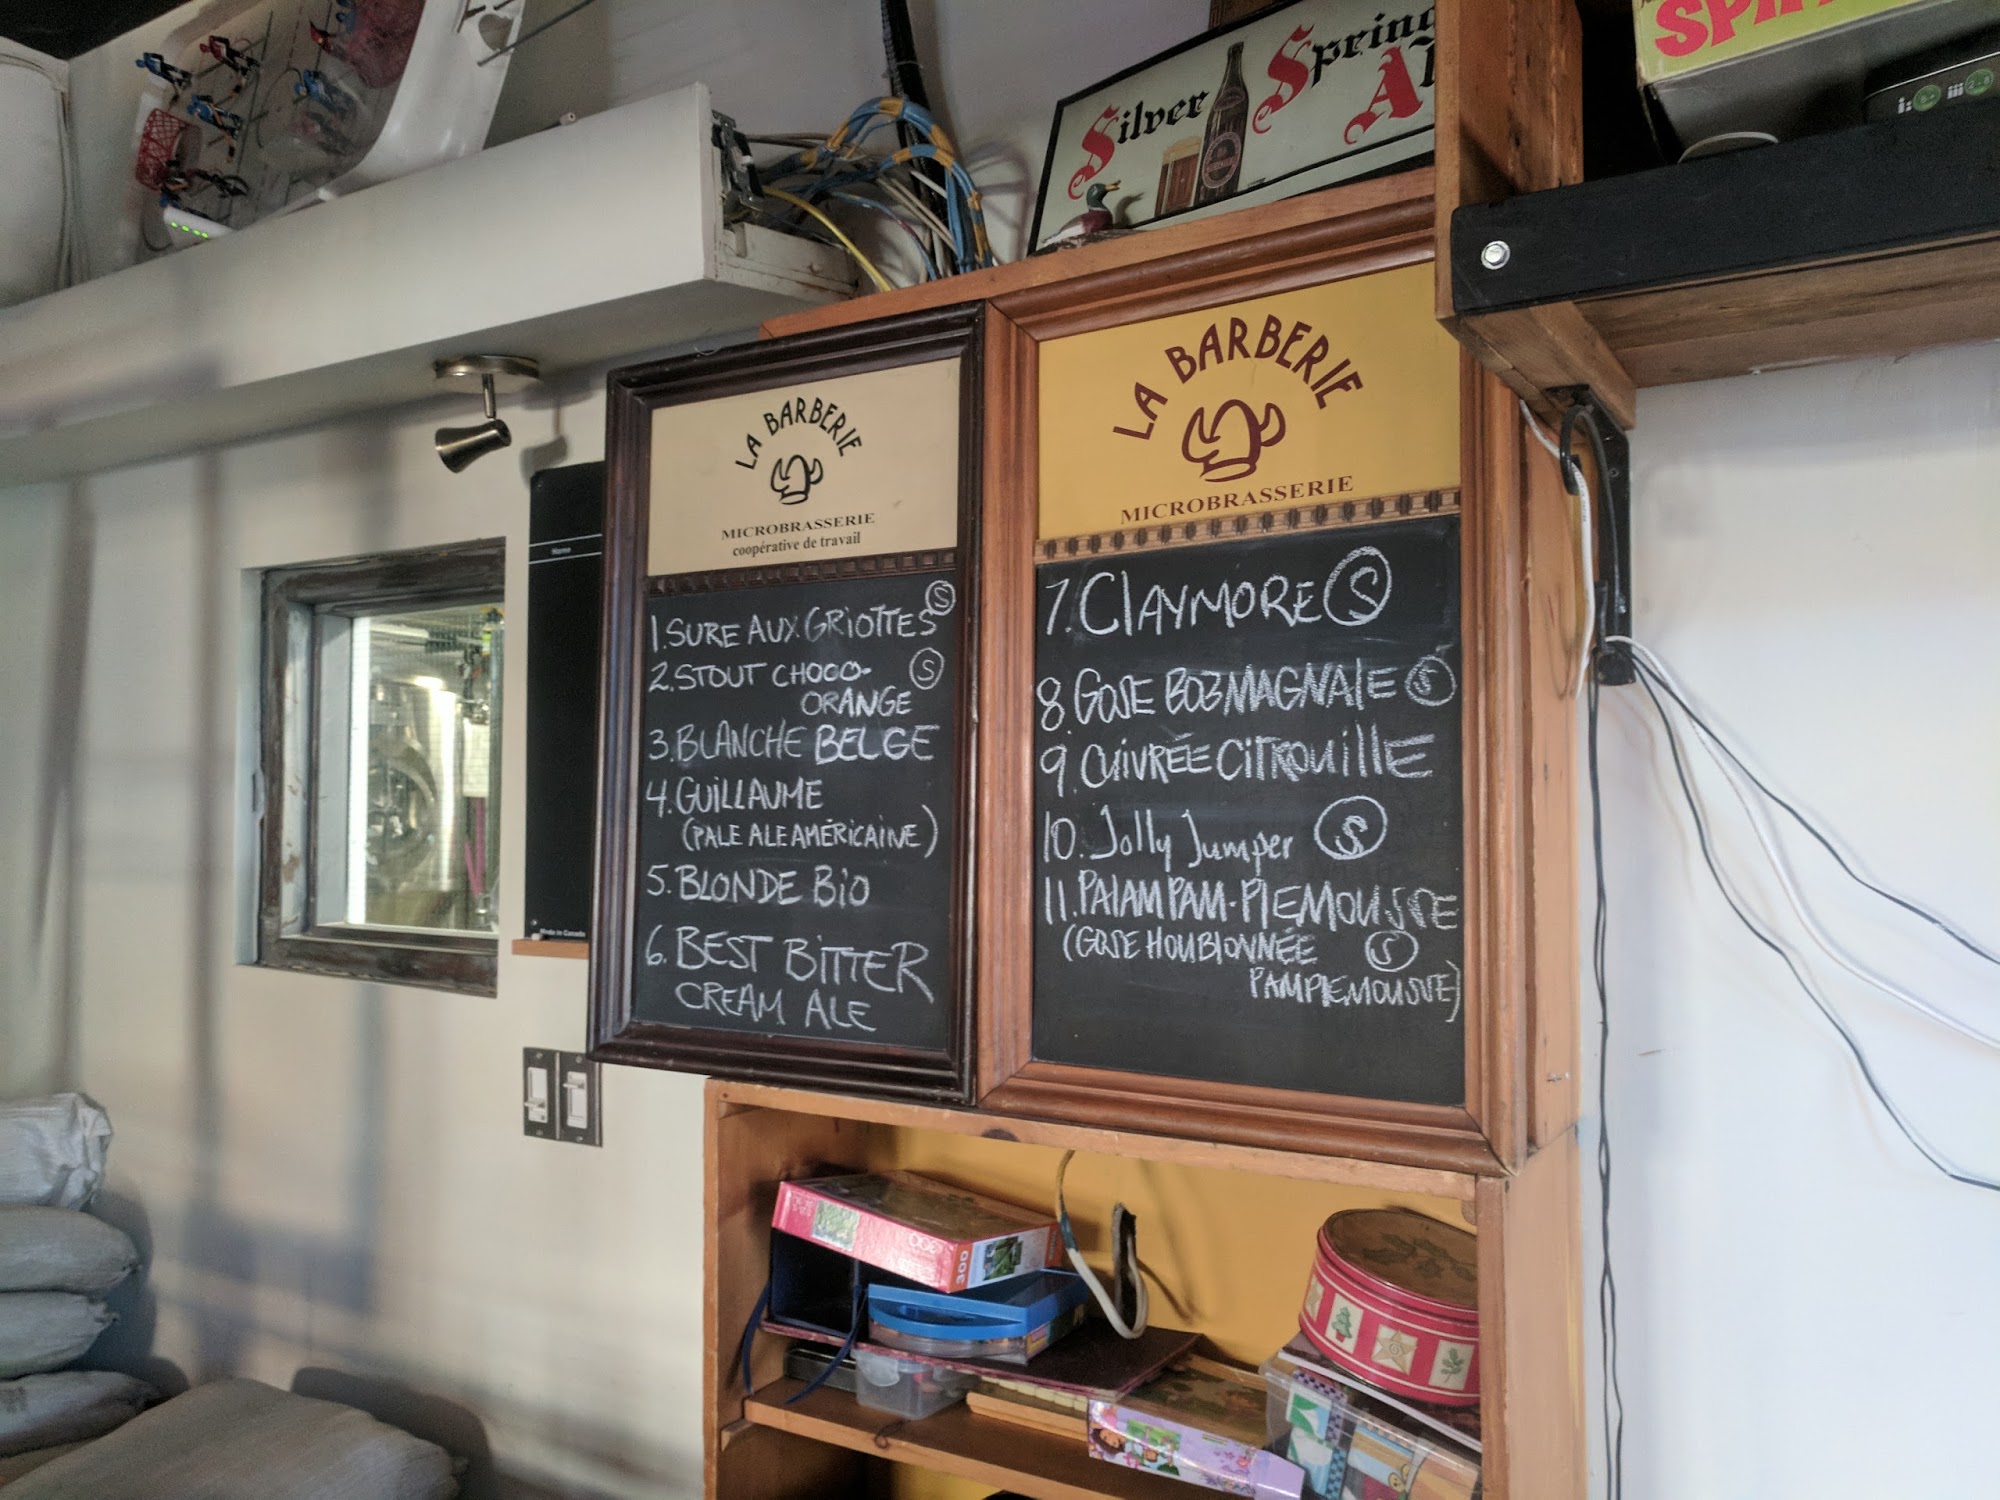 Silver Spring
SPI
LA BARBERIE
MICROBRASSERIE
coopérative de travail
1. SURE AUX GRIOTTES S
2. STOUT CHOCO- S
ORANGE
3. BLANCHE BELGE
4. GUILLAUME
(PALE ALE AMÉRICAINE)
5. BLONDE BiO
6. BEST BITTER
CREAM ALE
LA BARBERIE
MICROBRASSERIE
7. CLAYMORE S
8. GOSE BOZMAGNALE S
9. CUIVRÉE CITROUILLE
10. Jolly Jumper S
11. PALAMPAM-PLEMOUSSE
(GOSE HOUBLONNÉE S
PAMPLEMOUSSE)
Made in Canada
300